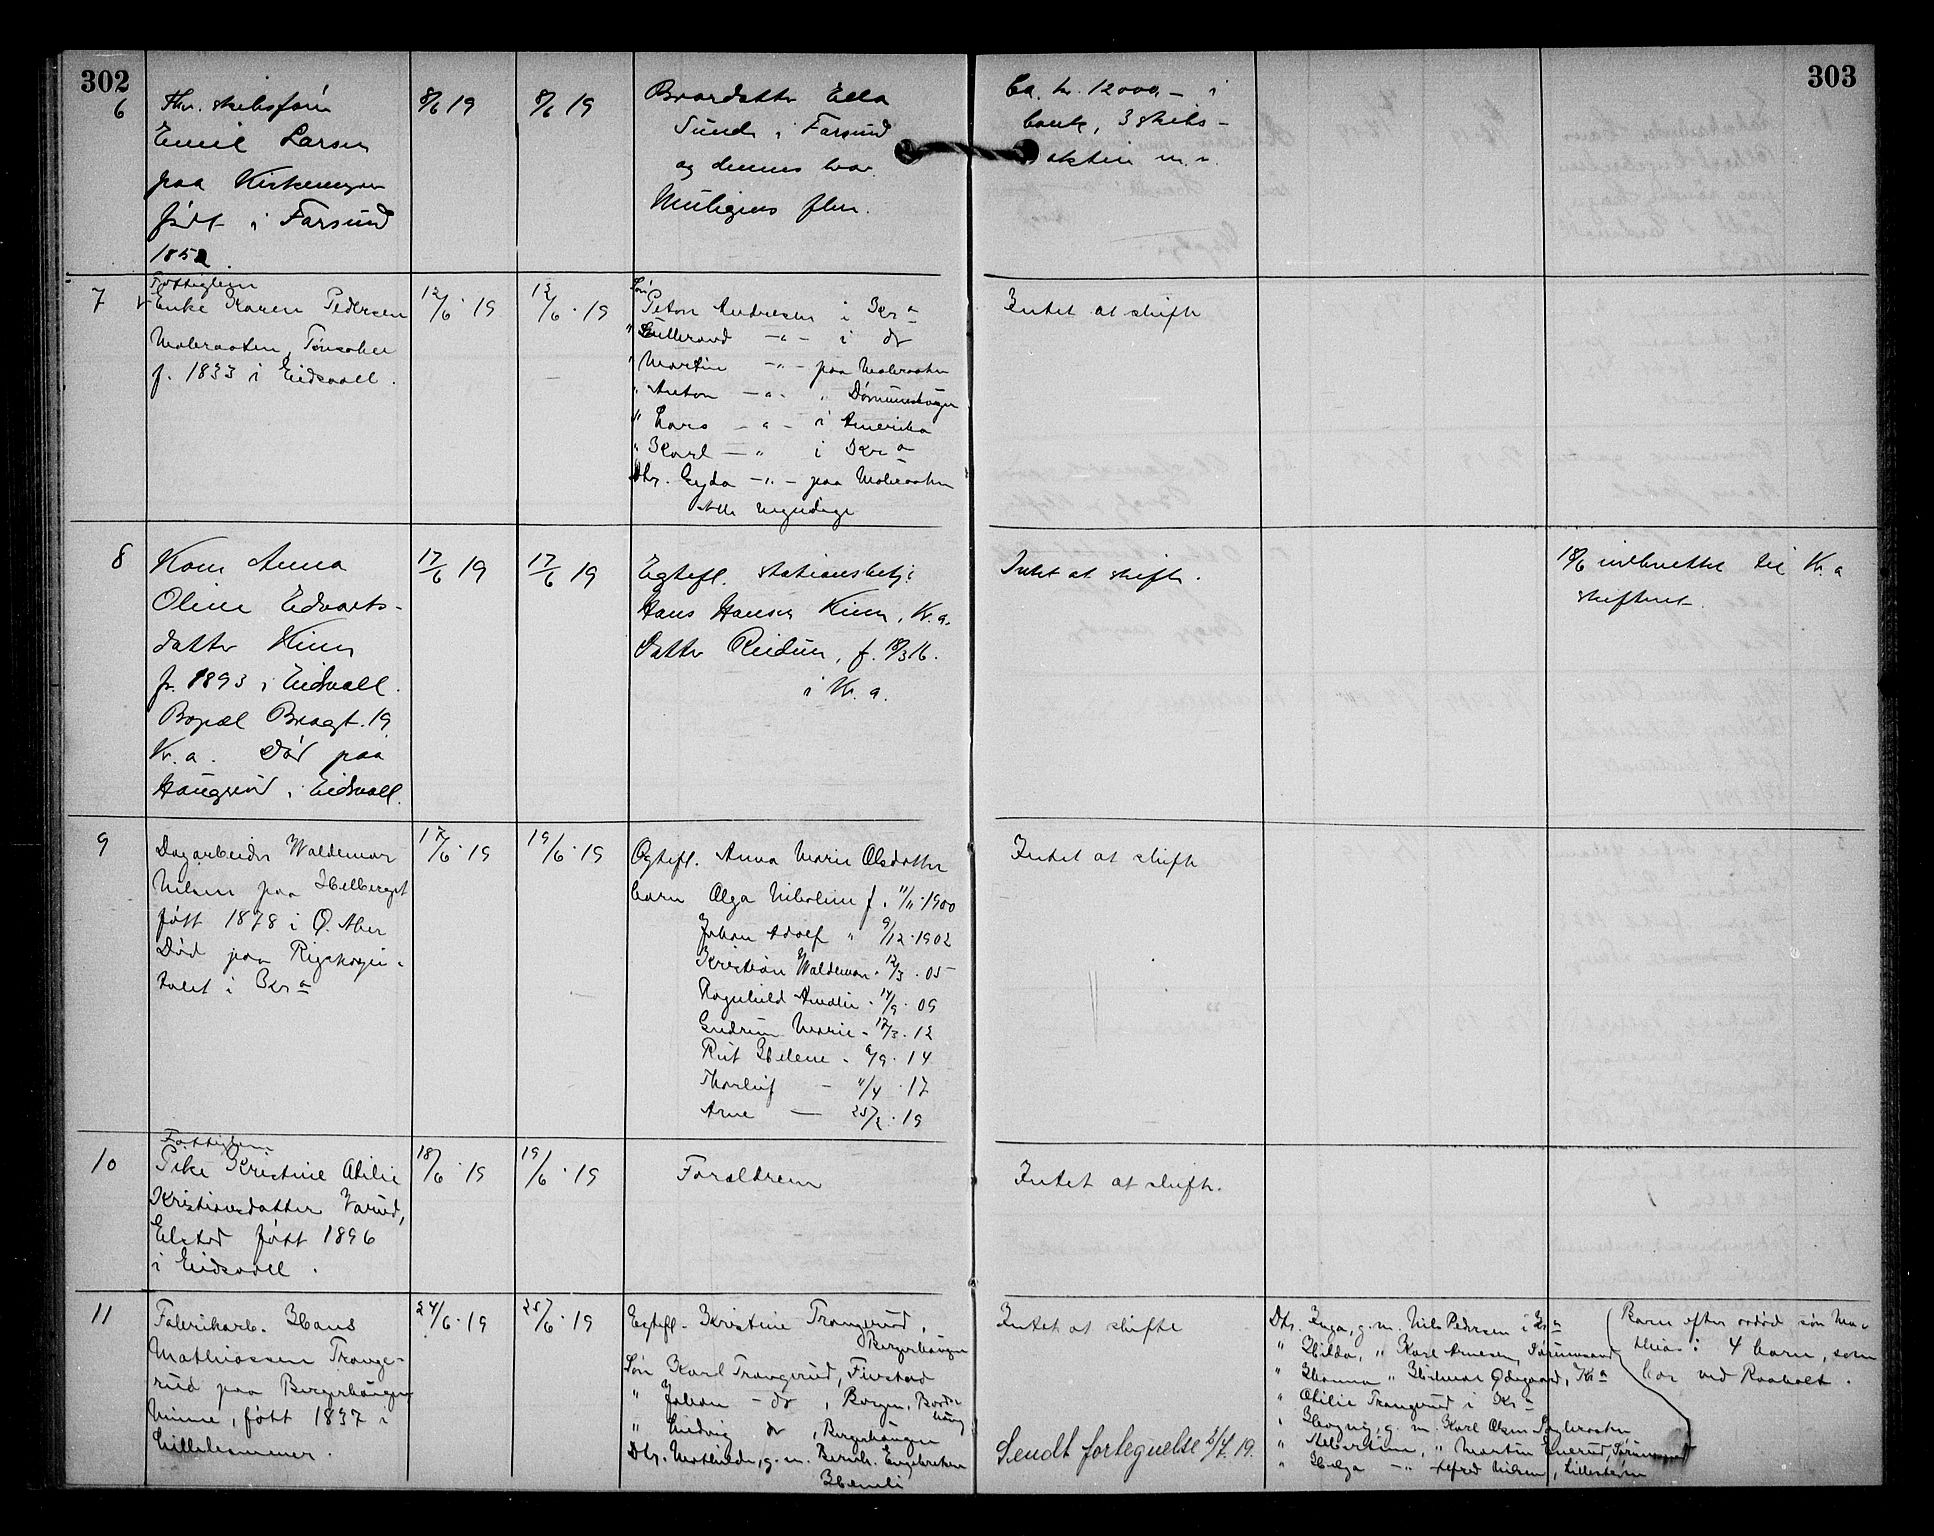 302
6
Fhv. skibsfører
Emil Larsen
paa Kirkemyren
født i Farsund
1852.
8/6 19
8/6 19
Brordatter Ella
Sunde i Farsund
og dennes bror.
Muligens flere.
Ca. kr. 12000.- i
bank, 3 skibs-
aktier m. v.
303
7
Fattiglem
Enke Karen Pedersen
f. 1833 i Eidsvoll.
12/6 · 19
13/6 · 19
Søn
Peton Andresen i Kra
" Gullerand -"- i do
" Martin -"- paa Mobraaten
" Anton -"- "
" Lars -"- i Amerika
" Karl -"- i Kra
Dtr. Gyda -"- paa Mobraaten
Alle myndige
Intet at skifte
8
Kone Anna
Oline Edvarts-
datter Kinn
f. 1893 i Eidsvoll.
Bopæl Bragt. 19
Kr.a. Død paa
Haugrud i Eidsvoll.
17/6 19
17/6 19
Egtefl. stationsbetj.
Hans Hansen Kinn, Kr.a.
Datter Reidun, f. 18/3 16.
i Kr.a.
Intet at skifte.
18/6 indberettet til Kr.a
skifteret.
9
Dagarbeider Waldemar
Nilsen paa Helberget
født 1878 i Ø. Aker
Død paa Rigshospi-
talet i Kra
17/6 · 19
19/6 · 19
Egtefl. Anna Marie Olsdatter
barn Olga Nikoline f. 11/11 · 1900
Johan Adolf " 9/12 · 1902
Kristian Waldemar " 12/3 · 05
Ragnhild Amalie " 14/9 · 09
Gudrun Marie " 17/3 · 12
Rut Helene " 6/9 · 14
Thorleif — 11/4 · 17
Arne — 25/2 · 19
Intet at skifte
10
Fattiglem
Pike Kristine Otilie
Kristiansdatter Varud,
Elstad født 1896
i Eidsvoll.
18/6 · 19
19/6 · 19
Forældrene
Intet at skifte.
11
Fabrikarb. Hans
Mathiassen Trange-
rud paa Bergerhaugen
Minne, født 1837 i
Lillehammer.
24/6 · 19
25/6 · 19
Egtefl. Kristine Trangerud,
Bergerhaugen
Søn Karl Trangerud, Finstad
" Johan - do , Borgen, Bonds-
haug
" Ludvig do , Bergerhaugen
Dtr. Mathilde, g. m. Bernh. Engebretsen
Hemli
Intet at skifte
Sendt fortegnelse 2/7. 19.
Dtr. Inga, g. m. Nils Pedersen i Kra
" Hilda, " Karl Arnesen, Sørumsand
" Hanna " Hilmar Ødegaard, Kra
" Otilie Trangerud i Kra
" Hagny, g. m. Karl Olsen
" Albertine, " Martin Enerud, Sørumsand
" Helga -"- Alfred Nilsen, Lillestrøm
Barn efter avdød søn Ma-
thias: 4 barn, som
bor ved Raaholt.